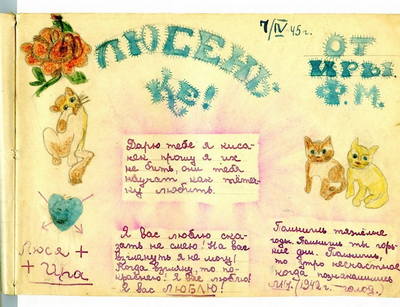 7/IV 45 г.
ЛЮСЕНЬ-
КЕ!
ОТ
ИРЫ.
Ф.М.
Дарю тебе я киса-
нек прошу я их
не бить, они тебя
научат как тётень-
ку любить.
Люся +
+ Ира
Я вас люблю ска-
зать не смею! На вас
взглянуть я не могу!
Когда взгляну, то по-
краснею! Я вас люблю!
Я вас ЛЮБЛЮ!
Помнишь тяжёлые
годы. Помнишь ты горь-
кие дни. Помнишь,
то утро несчастное
когда познакомились
мы. (1942 г. голод.)